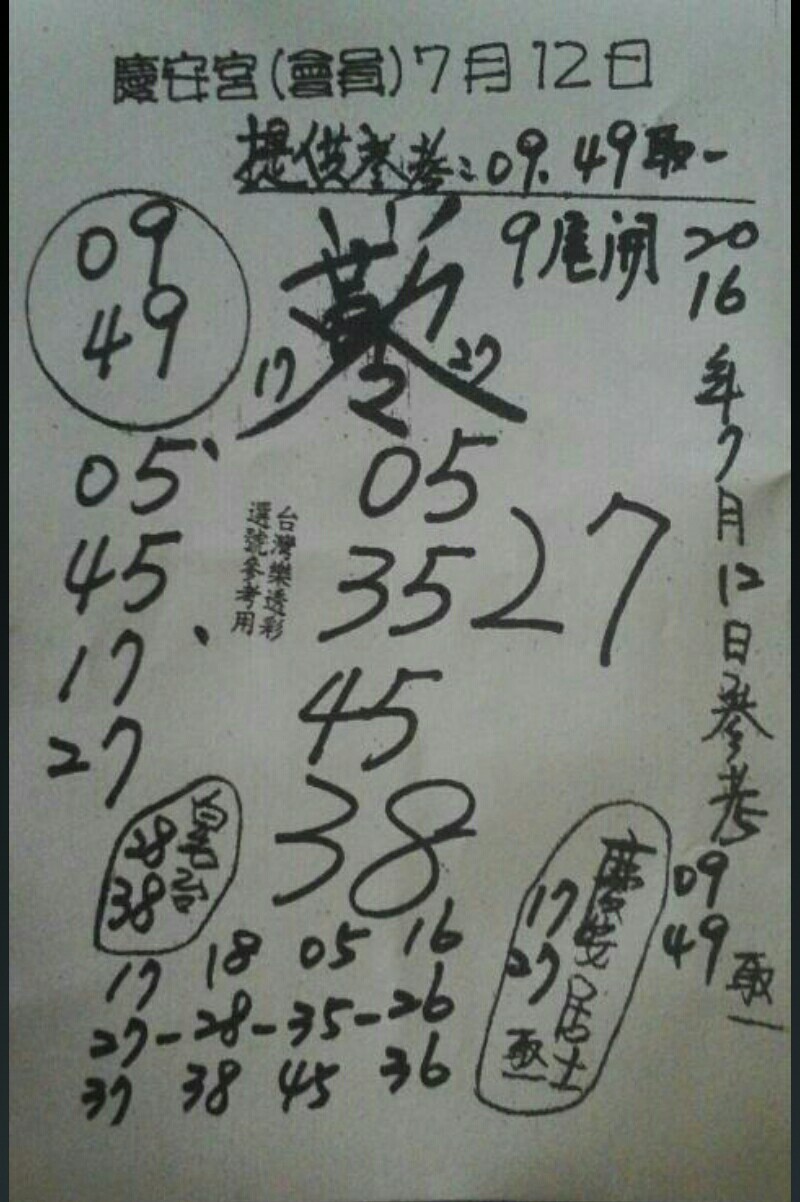 慶安宮(會員)7月12日
提供參考:09.49取一
09
49
9尾開
2016年7月12日參考
09
49取一
17
27
05
45
17
27
台灣樂透彩
選號參考用
05
35
45
27
38
28
38
慶安居士
17
27
取一
17 18 05 16
27-28-35-26
37 38 45 36